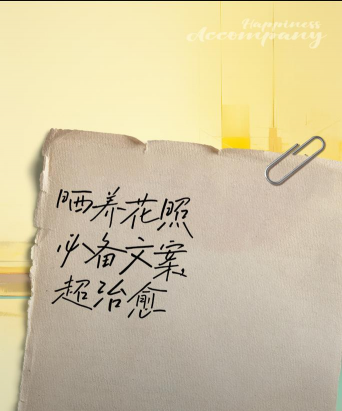 Happiness
Accompany
晒养花照
必备文案
超治愈